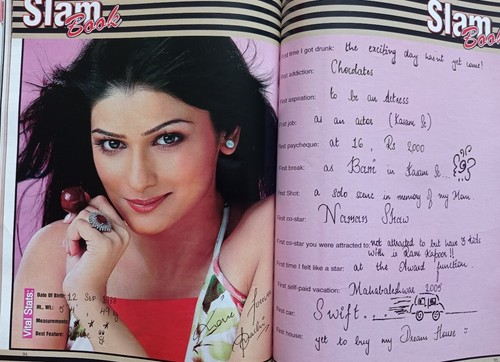 Slam
Book
Vital Stats:
Date Of Birth: 12 Sep
Ht., Wt.: 5'
Measurements:
Best Feature:
Slam
Book
First time I got drunk: the exciting day hasn't yet come!
First addiction: Chocolates
First aspiration: to be an Actress
First job: as an actor (Kasam Se)
First paycheque: at 16, Rs 2000
First break: as Bani in Kasam Se...
First Shot: a solo scene in memory of my Mom
First co-star: Naman Shaw
First co-star you were attracted to: not attracted to but have 3 kids
with is Ram Kapoor!!
First time I felt like a star: at the Award function.
First self-paid vacation: Mahabaleshwar 2005
First car: Swift....
First house: yet to buy my Dream House =